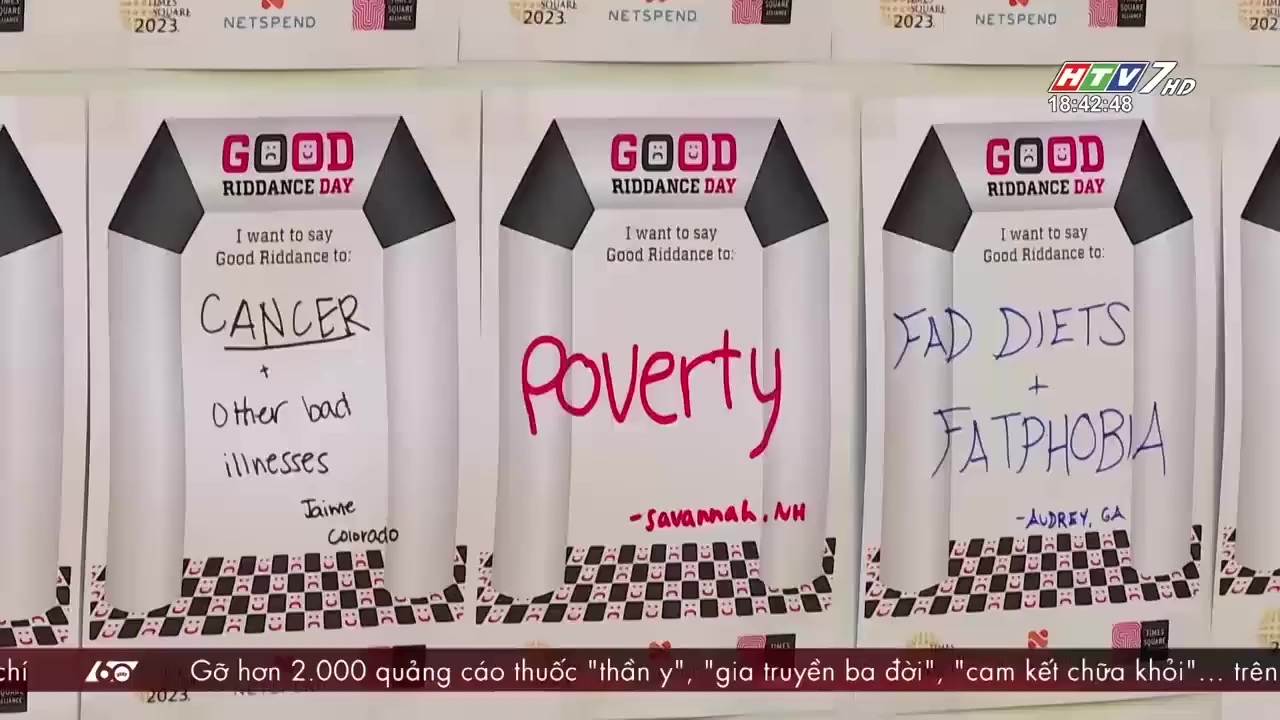 TIMES SQUARE
2023
NETSPEND
TIMES SQUARE ALLIANCE
SQUARE
2023
NETSPEND
SQUARE
2023
NETSPEND
SQUARE
HTV7 HD
18:42:48
GOOD
RIDDANCE DAY
I want to say
Good Riddance to:
CANCER
+
Other bad
illnesses
Jaime
Colorado
GOOD
RIDDANCE DAY
I want to say
Good Riddance to:
Poverty
-Savannah. NH
GOOD
RIDDANCE DAY
I want to say
Good Riddance to:
FAD DIETS
+
FATPHOBIA
-AUDREY, GA
TIMES SQUARE
chí
60 giây
Gỡ hơn 2.000 quảng cáo thuốc "thần y", "gia truyền ba đời", "cam kết chữa khỏi"... trên
2023